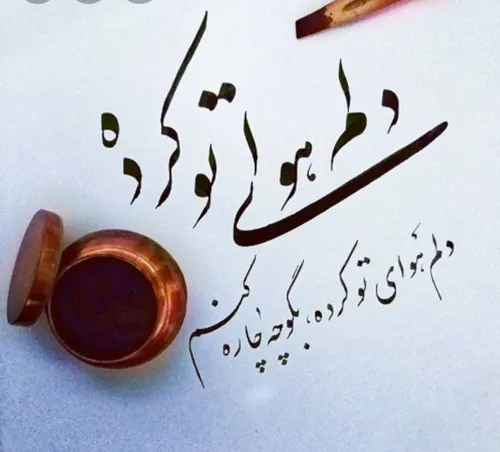 دلم هوای تو کرده
دلم هَوای تو کرده، بگو چه چاره کنم